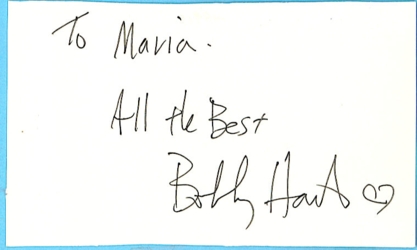 To Maria.
All the Best
Bobby Hart